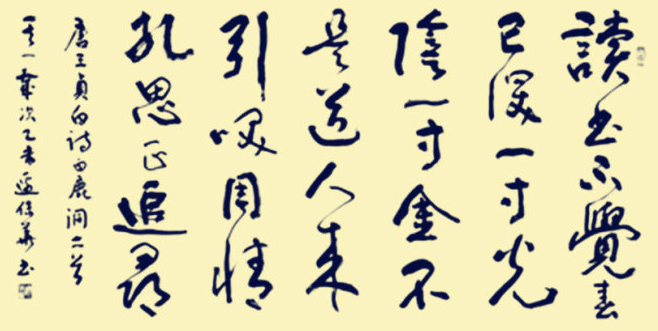 讀書不覺春
已深一寸光
陰一寸金不
是道人来
引咲周情
孔思正追尋
唐王貞白詩白鹿洞二首
其一歲次乙未
書